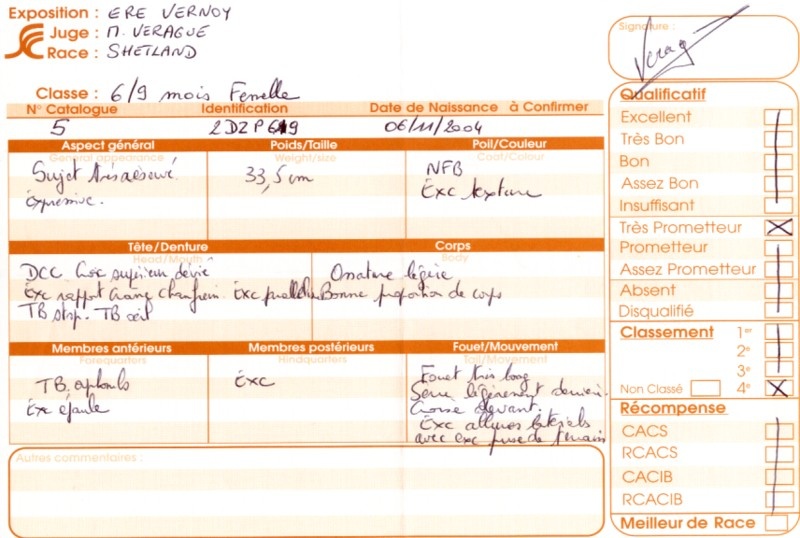 Exposition : ERE VERNOY
Juge : M. VERAGUE
Race : SHETLAND
Signature :
Verag
Classe : 6/9 mois Femelle
N° Catalogue Identification Date de Naissance à Confirmer
5 2DZP 619 06/11/2004
Aspect général Poids/Taille Poil/Couleur
General appearance Weight/size Coat/Colour
Sujet très 33,5 cm NFB
expressive. Exc texture
Tête/Denture Corps
Head/Mouth Body
DCC croc supérieur dévié Ossature légère
Exc rapport crane chanfrein. Exc Bonne proportion de corps
TB stop. TB œil
Membres antérieurs Membres postérieurs Fouet/Mouvement
Forequarters Hindquarters Tail/Movement
TB. aplombs Exc Fouet très long
Exc épaule Serre légèrement derrière
Croise devant.
Exc allures latérales
avec exc prise de terrain
Autres commentaires :
Qualificatif
Excellent
Très Bon
Bon
Assez Bon
Insuffisant
Très Prometteur X
Prometteur
Assez Prometteur
Absent
Disqualifié
Classement 1er
2e
3e
Non Classé 4e X
Récompense
CACS
RCACS
CACIB
RCACIB
Meilleur de Race